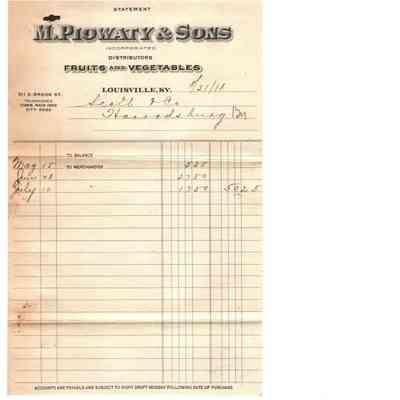 STATEMENT
M. PIOWATY & SONS
INCORPORATED
DISTRIBUTORS
FRUITS AND VEGETABLES
311 S. BROOK ST.
TELEPHONES
CUMB. MAIN
CITY
LOUISVILLE, KY. /31/18
Scott & Co
Harrodsburg Ky
TO BALANCE
May 15 TO MERCHANDISE 5 25
June 28 " 27 50
July 10 " 17 50 50 25
ACCOUNTS ARE PAYABLE AND SUBJECT TO SIGHT DRAFT MONDAY FOLLOWING DATE OF PURCHASE